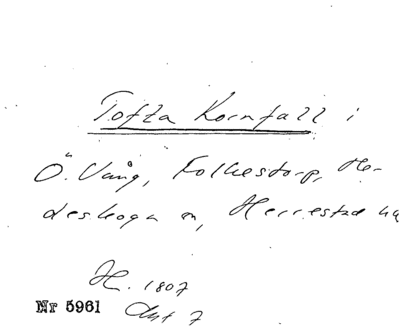 Tofta Kornfall i
Ö. Vång, Folkestorp, He-
deskoga sn, Herrestad hd
H. 1807
Akt 7
Nr 5961